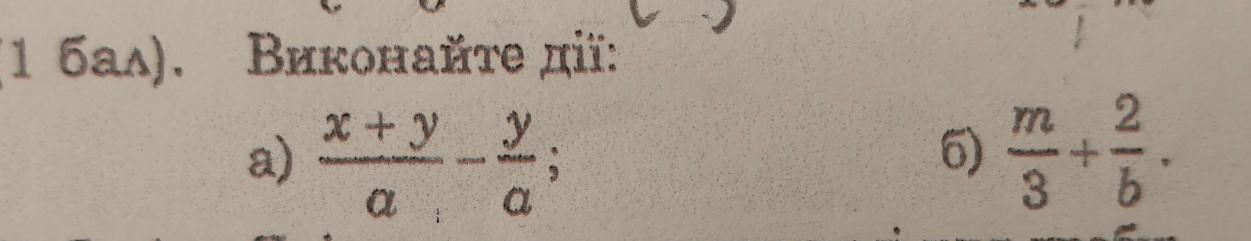 (1 бал). Виконайте дії:
а) \frac{x + y}{a} - \frac{y}{a}; б) \frac{m}{3} + \frac{2}{b}.